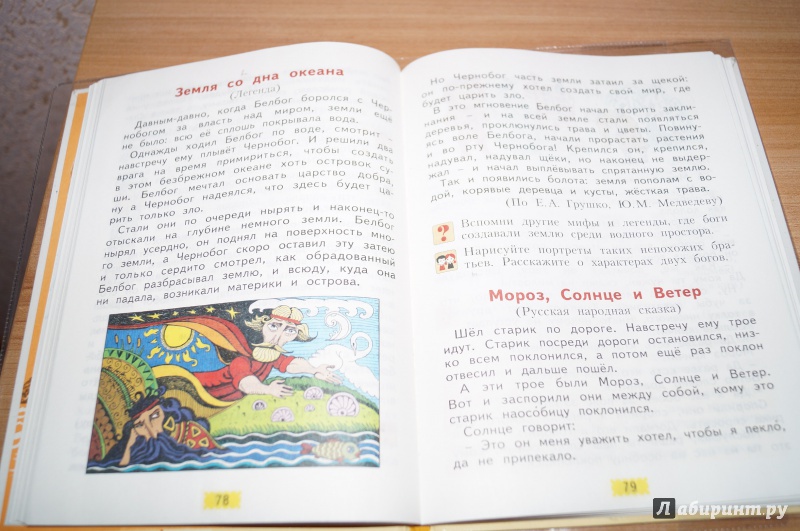 Земля со дна океана
(Легенда)
Давным-давно, когда Белбог боролся с Чер-
нобогом за власть над миром, земли ещё
не было: всю её сплошь покрывала вода.
Однажды ходил Белбог по воде, смотрит –
навстречу ему плывёт Чернобог. И решили два
врага на время примириться, чтобы создать
в этом безбрежном океане хоть островок су-
ши. Белбог мечтал основать царство добра,
ну а Чернобог надеялся, что здесь будет ца-
рить только зло.
Стали они по очереди нырять и наконец-то
отыскали на глубине немного земли. Белбог
нырял усердно, он поднял на поверхность мно-
го земли, а Чернобог скоро оставил эту затею
и только сердито смотрел, как обрадованный
Белбог разбрасывал землю, и всюду, куда она
ни падала, возникали материки и острова.
78
Но Чернобог часть земли затаил за щекой:
он по-прежнему хотел создать свой мир, где
будет царить зло.
В это мгновение Белбог начал творить закли-
нания – и на всей земле стали появляться
деревья, проклюнулись трава и цветы. Повину-
ясь воле Белбога, начали прорастать растения
и во рту Чернобога! Крепился он, крепился,
надувал, надувал щёки, но наконец не выдер-
жал – и начал выплёвывать спрятанную землю.
Так и появились болота: земля пополам с во-
дой, корявые деревца и кусты, жёсткая трава.
(По Е.А. Грушко, Ю.М. Медведеву)
? Вспомни другие мифы и легенды, где боги
создавали землю среди водного простора.
Нарисуйте портреты таких непохожих бра-
тьев. Расскажите о характерах двух богов.
Мороз, Солнце и Ветер
(Русская народная сказка)
Шёл старик по дороге. Навстречу ему трое
идут. Старик посреди дороги остановился, низ-
ко всем поклонился, а потом ещё раз поклон
отвесил и дальше пошёл.
А эти трое были Мороз, Солнце и Ветер.
Вот и заспорили они между собой, кому это
старик наосо́бицу поклонился.
Солнце говорит:
– Это он меня уважить хотел, чтобы я пекло́,
да не припекало.
79
Лабиринт.ру